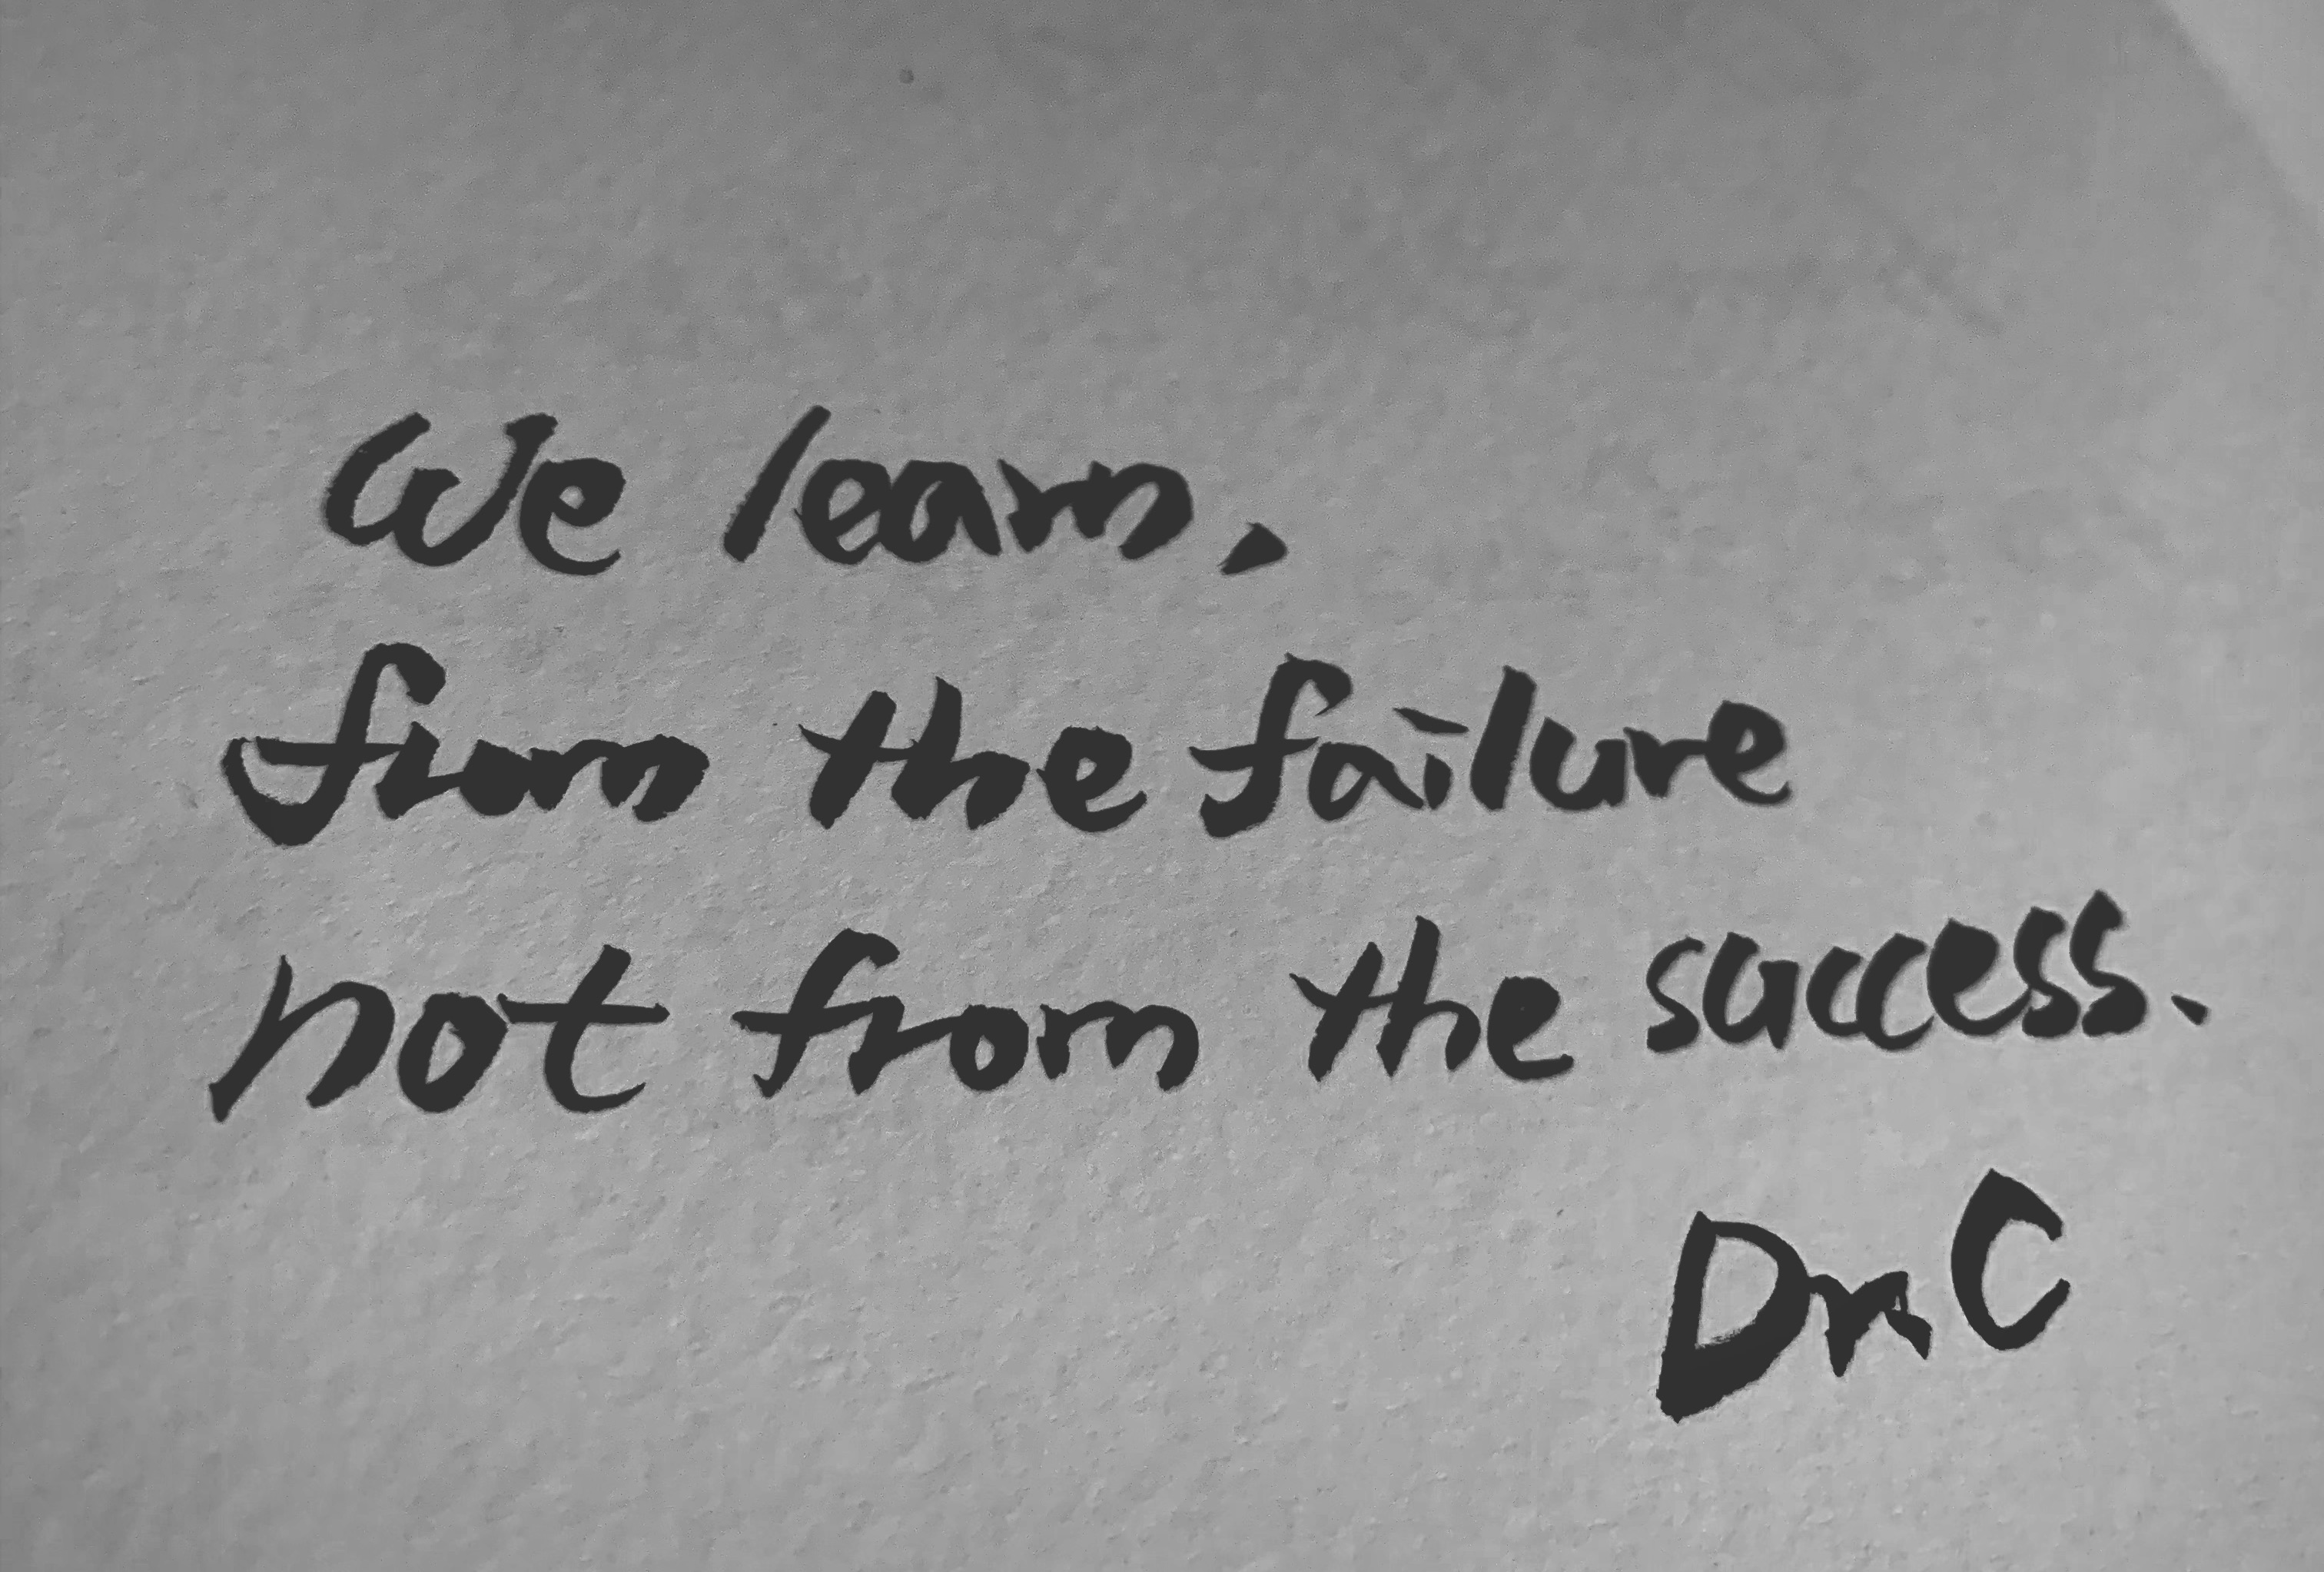 We learn,
from the failure
not from the success.
Dr. C